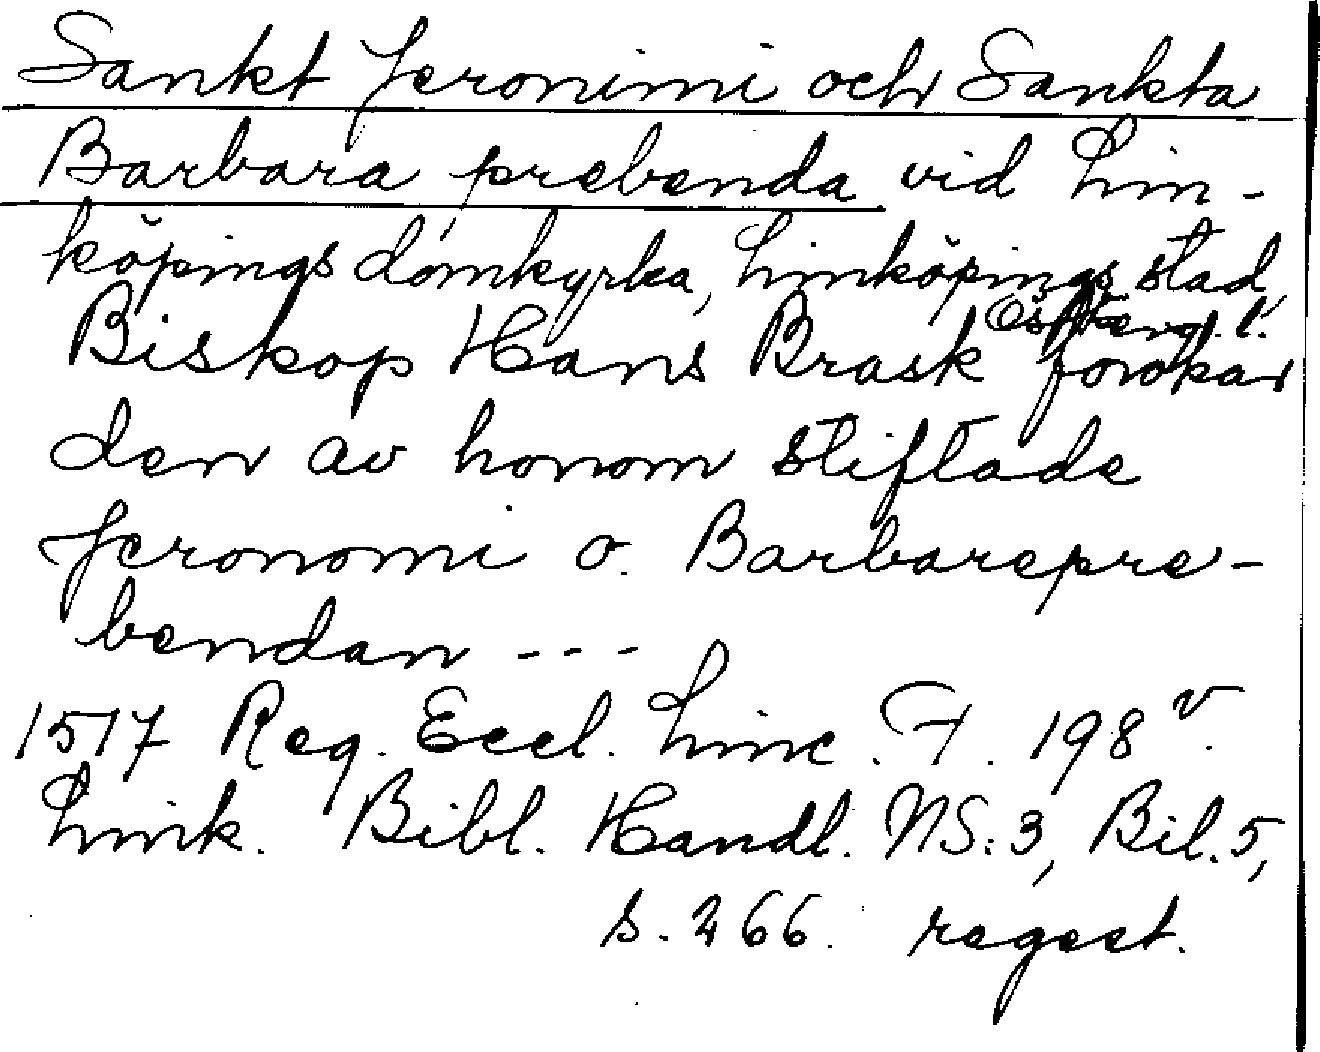 Sankt Jeronimi och Sankta
Barbara prebenda vid Lin-
köpings domkyrka, Linköpings stad,
Östergl. l.
Biskop Hans Brask förökar
den av honom stiftade
Jeronomi o. Barbarepre-
bendan ---
1517 Reg. Eccl. Linc. F. 198 v.
Link. Bibl. Handl. NS:3, Bil. 5,
s. 266. regest.